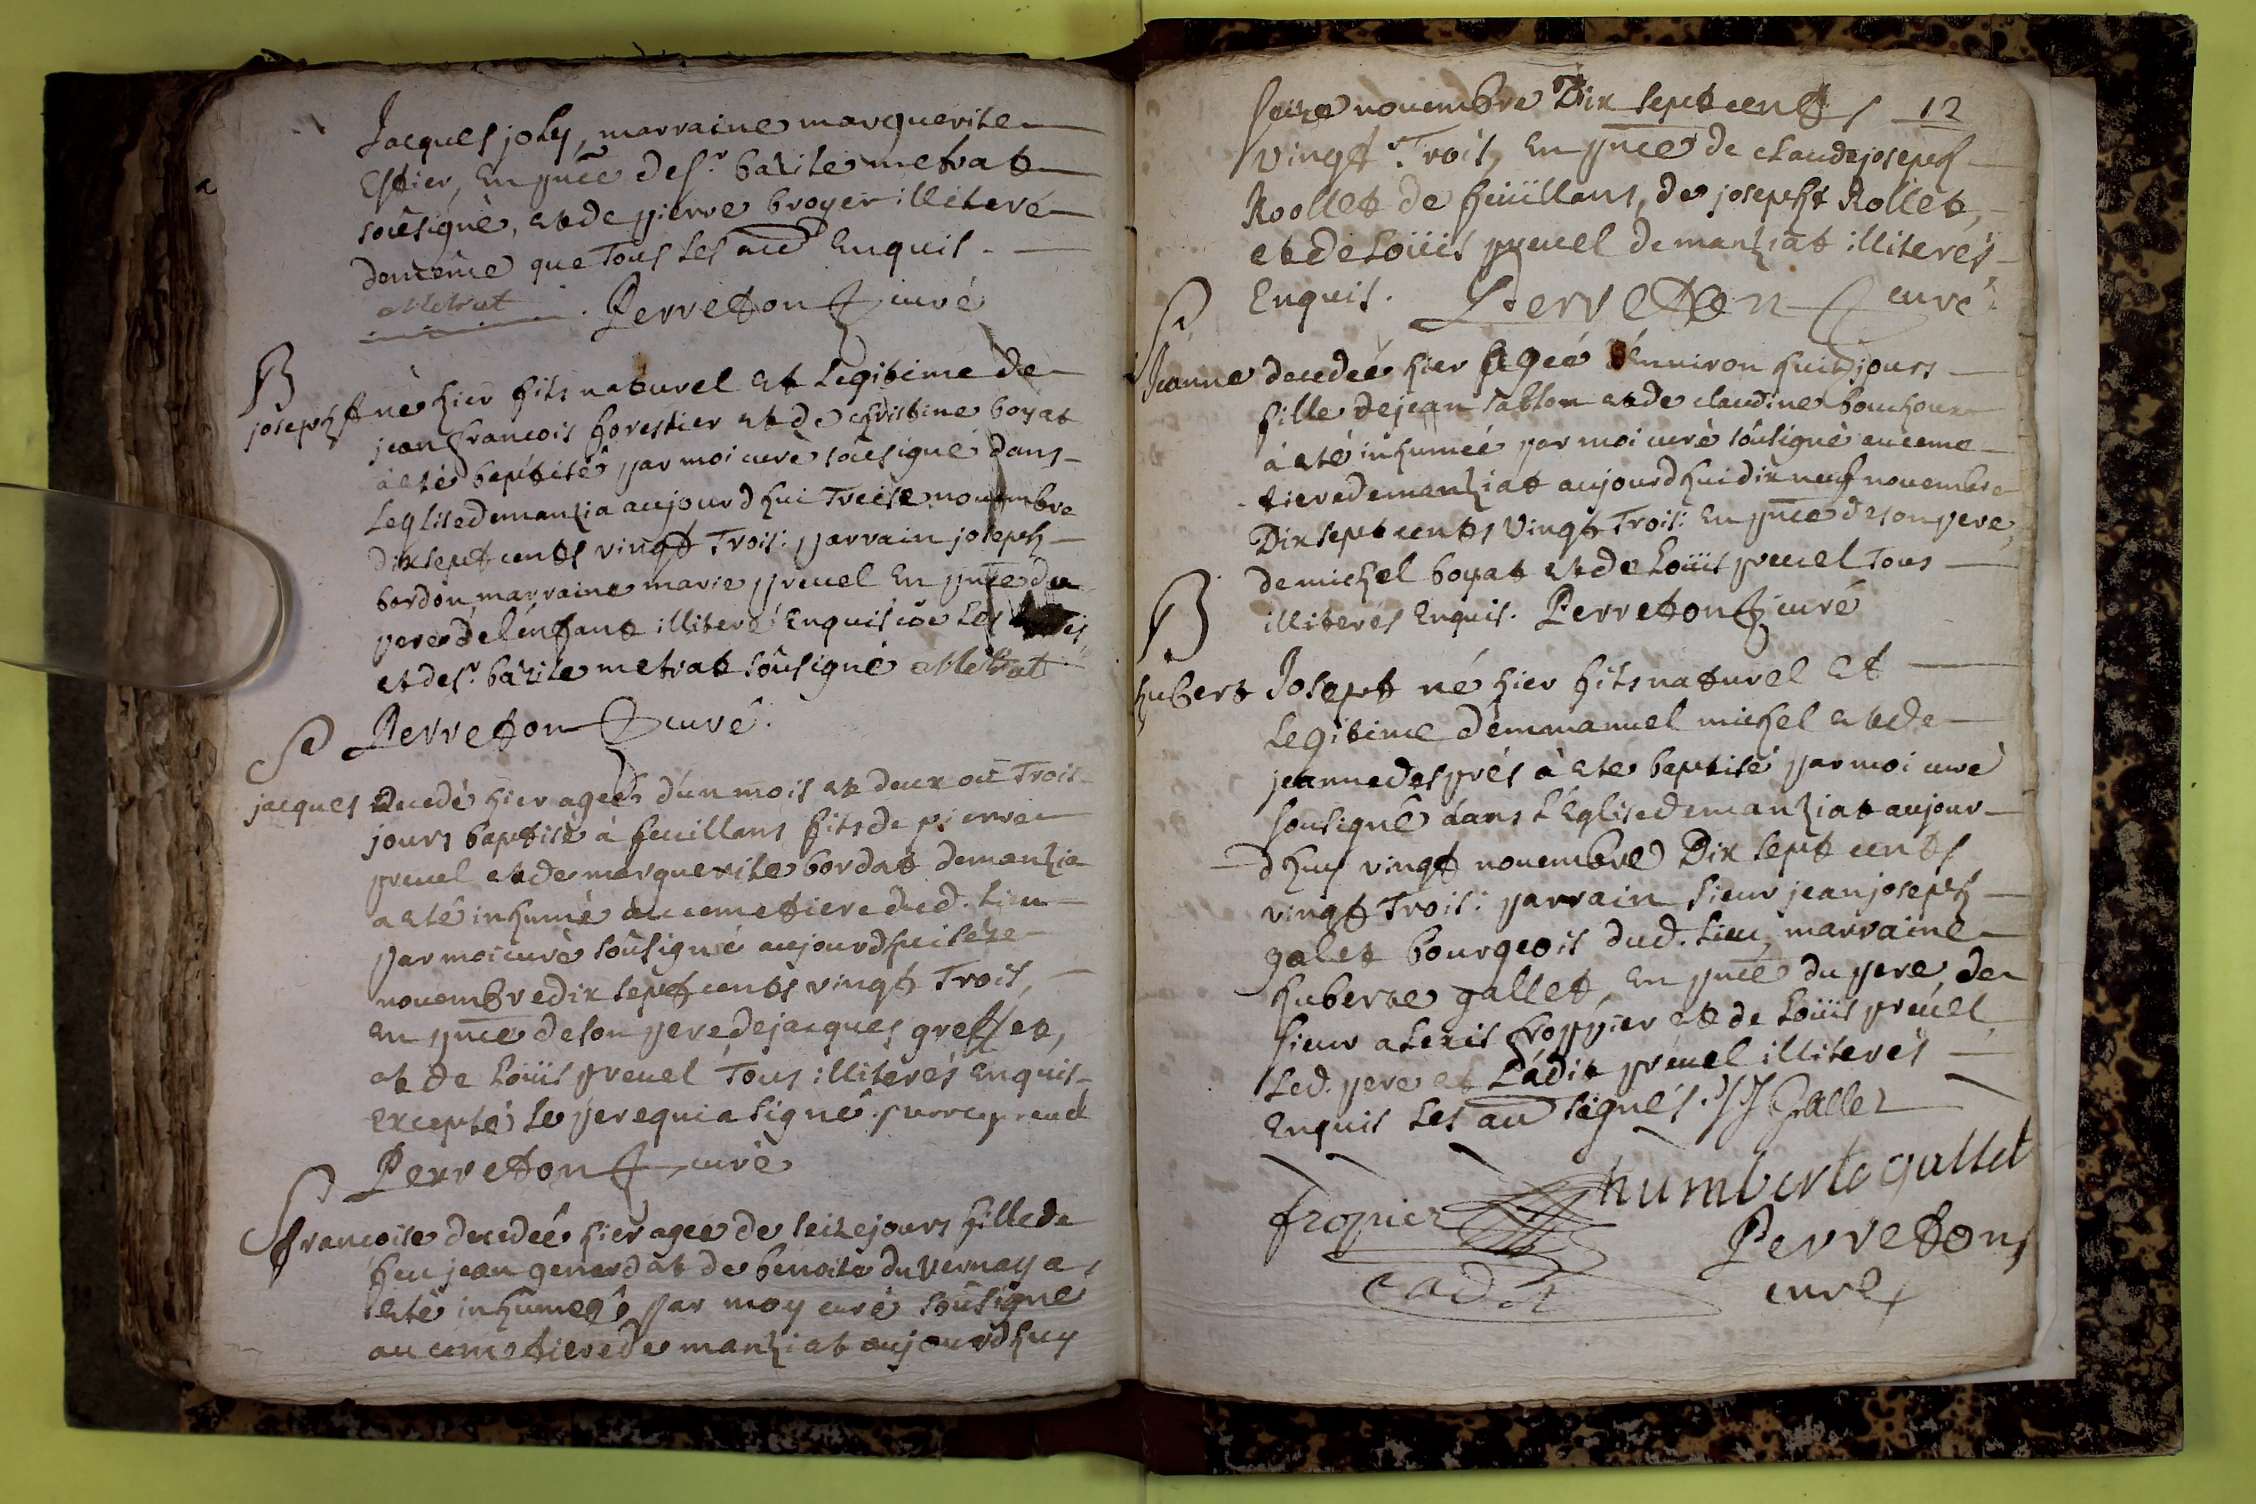 Jacques joly, marraine marguerite
Estier, en pnce de sr. bazile metrat
sousigné, et de pierre broyer illiteré
demême que Tous les aud Enquis.
Metrat . Perreton curé
B
joseph né hier fils naturel et legitime de
jean francois forestier et de christine boyat
à eté baptisé par moi curé sousigné dans
l'eglise demanzia aujourdhui Treise nouembre
dix sept cents vingt Trois: parrain joseph
bordon, marraine marie preuel En pnce du
pere de lenfant illiteré Enquis coe les
et de sr. bazile metrat sousigné Metrat
Perreton curé.
S
jacques decedé hier ageé d'un mois et deux ou Trois
jours baptisé à feuillans fils de pierre
preuel et de marguerite bordat demanzia
a eté inhumé au cemetiere dud. lieu
par moi curé sousigné aujourdhui séze
nouembre dix sept cents vingt Trois,
en pnce de son pere de jacques greffet,
et de Loüis preuel Tous illiterés enquis
excepté le pere qui a signé. pierre preuel
Perreton curé
S
francoise decedeé hier ageé de seize jours fille de
feu jean generdat de benoite du Vernay a
eté inhumeé par moy curé sousigné
au cemetiere de manziat aujourdhuy
seize nouembre Dix sept cents 12
vingt Trois, En pnce de claude joseph
Roollet de feüillans, de joseph Rollet,
et de Loüis preuel de manziat illiterés
Enquis. Perreton curé
S
Jeanne decedeé hier ageé d'enuiron huit jours
fille de jean sablon et de claudine bouchoux
à eté inhumeé par moi curé sousigné au ceme
tiere demanziat aujourdhui dix neuf nouembre
Dix sept cents Vingt Trois: En pnce de son pere,
de michel boyat et de Loüis preuel Tous
illiterés Enquis. Perreton curé
B
hubert Josept né hier fils naturel Et
Legitime d'emmanuel michel et de
jeanne després à eté baptisé par moi curé
sousigné dans l'Eglise demanziat aujour
dhuy vingt nouembre Dix sept cents
vingt Trois: parrain sieur jean joseph
galet bourgeois dud. lieu, marraine
huberte gallet, en pnce du pere de
sieur alexis froppier et de Loüis preuel
Led. pere et Ladit preuel illiterés
Enquis les au signés. JJ Gallet
fropier humberte gallet
cadet Perreton
curé